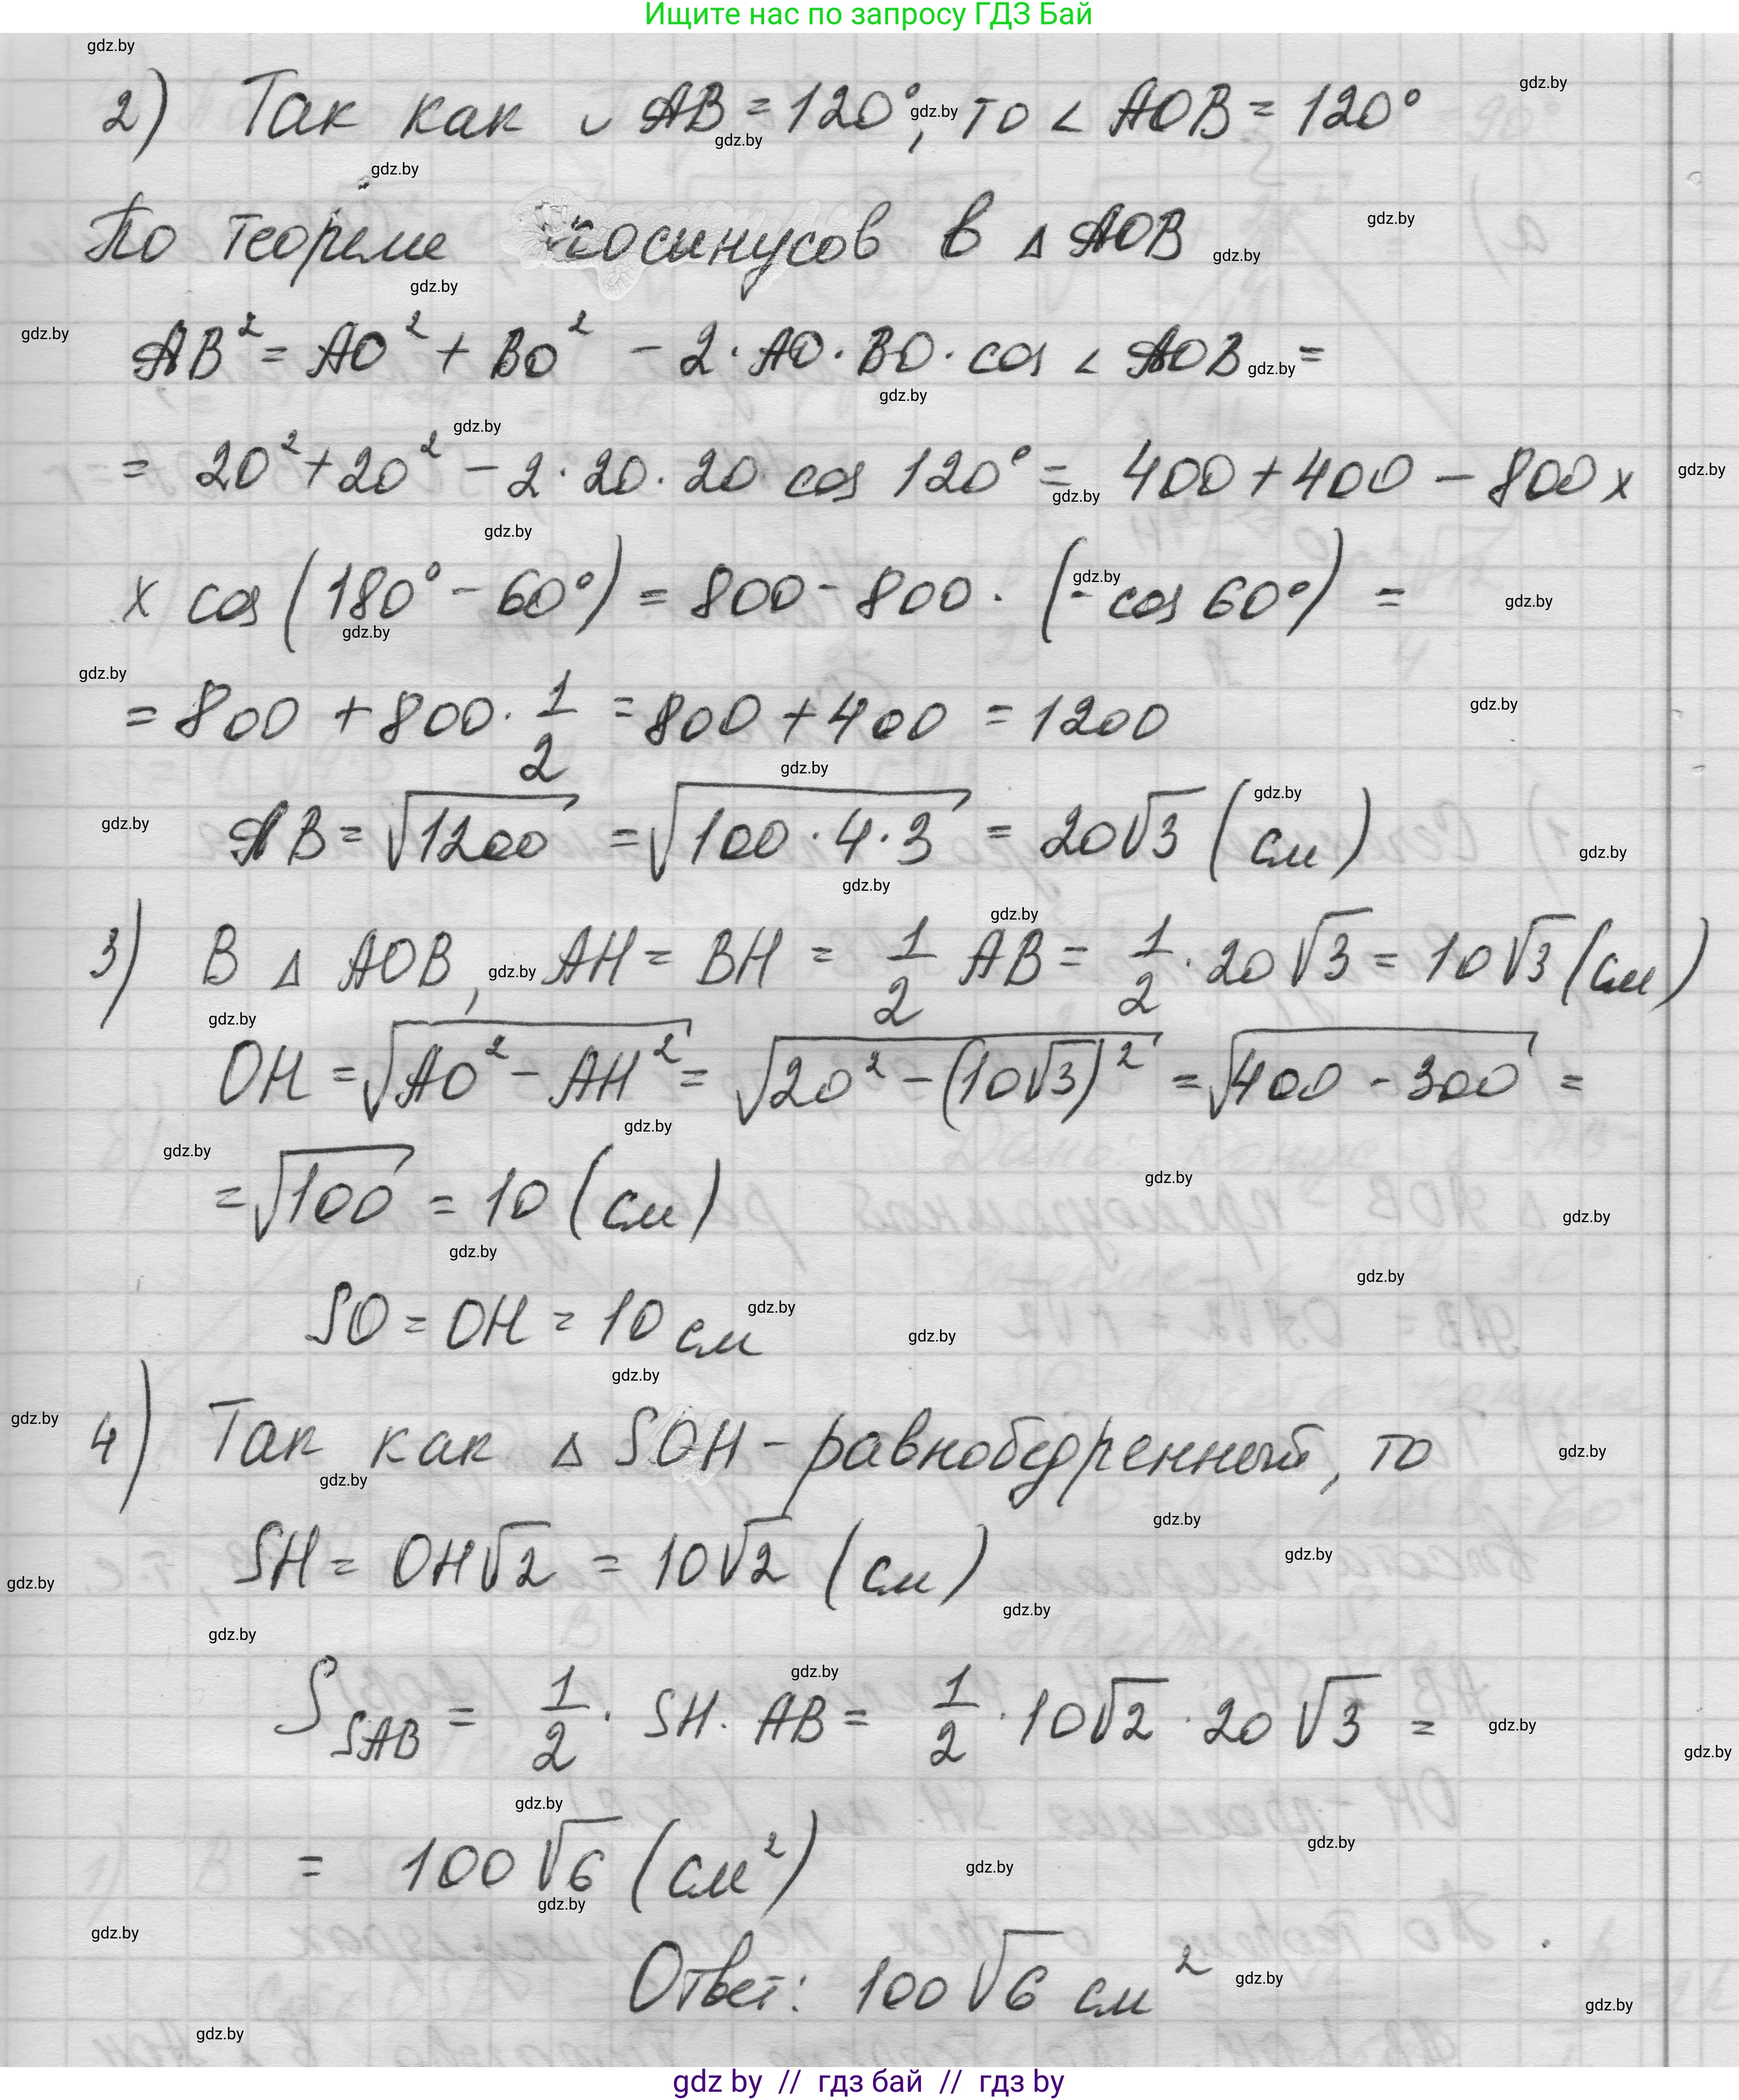 Ищите нас по запросу ГДЗ Бай
2) Так как ◡ AB = 120°, то ∠ AOB = 120°
По теореме косинусов в △ AOB
AB² = AO² + BO² - 2 · AO · BO · cos ∠ AOB =
= 20² + 20² - 2 · 20 · 20 cos 120° = 400 + 400 - 800 x
x cos (180° - 60°) = 800 - 800 · (- cos 60°) =
= 800 + 800 · 1/2 = 800 + 400 = 1200
AB = √1200 = √100 · 4 · 3 = 20√3 (см)
3) В △ AOB, AH = BH = 1/2 AB = 1/2 · 20√3 = 10√3 (см)
OH = √AO² - AH² = √20² - (10√3)² = √400 - 300 =
= √100 = 10 (см)
SO = OH = 10 см
4) Так как △ SOH - равнобедренный, то
SH = OH√2 = 10√2 (см)
S SAB = 1/2 · SH · AB = 1/2 · 10√2 · 20√3 =
= 100√6 (см²)
Ответ: 100√6 см²
gdz by // гдз бай // гдз by